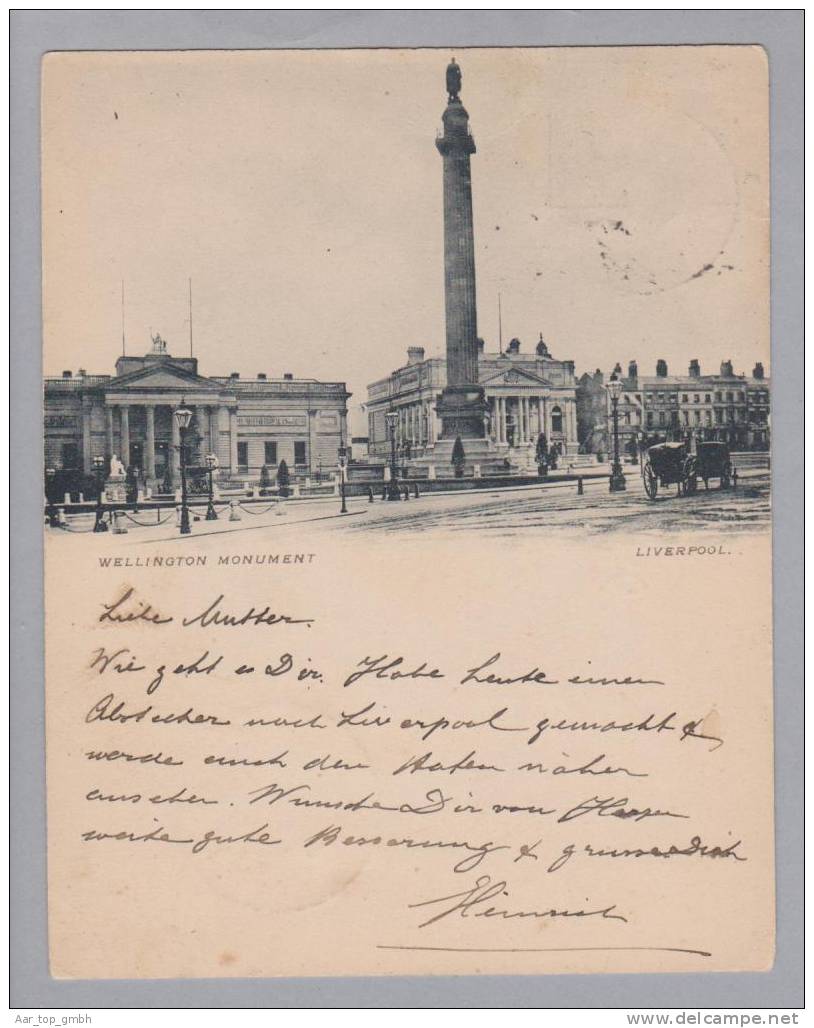 WELLINGTON MONUMENT
LIVERPOOL.
Liebe Mutter.
Wie geht es Dir. Habe heute einen
Abstecher nach Liverpool gemacht &
werde auch den Hafen näher
ansehen. Wünsche Dir von Herzen
weite gute Besserung & grüsse Dich
Heinrich
Aar_top_gmbh
www.delcampe.net